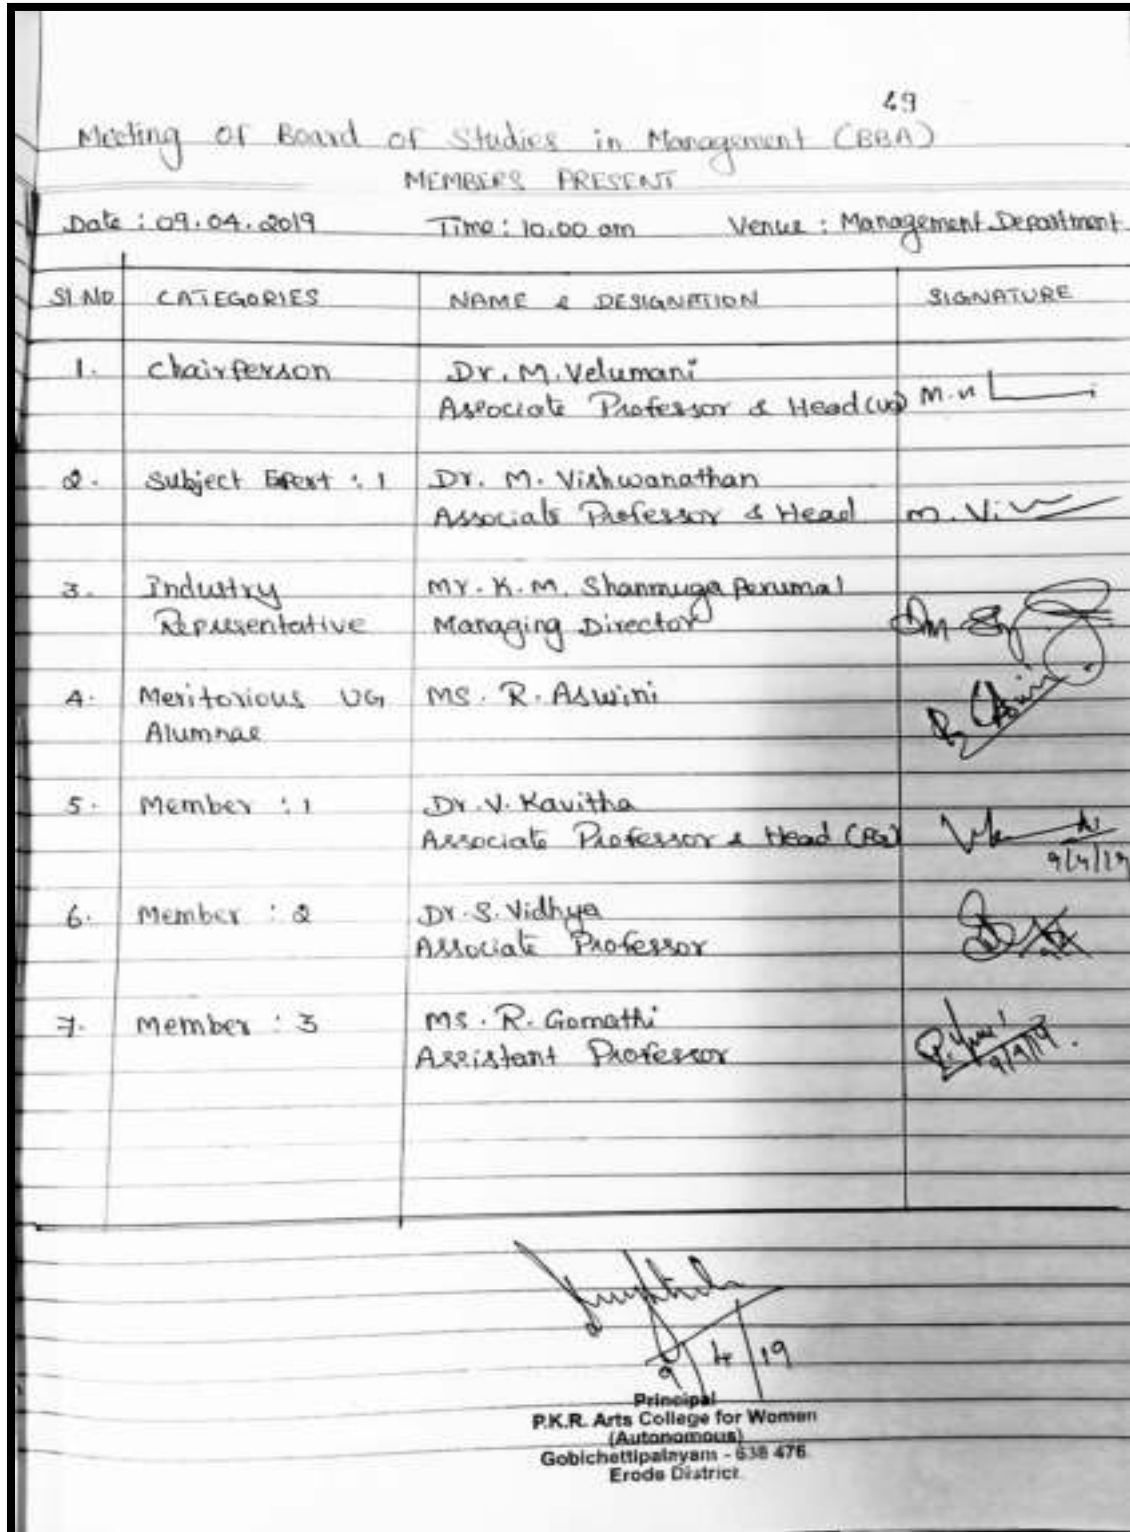 49
Meeting of Board of Studies in Management (BBA)
MEMBERS PRESENT
Date : 09.04.2019 Time : 10.00 am Venue : Management Department
Sl.No CATEGORIES NAME & DESIGNATION SIGNATURE
1. Chairperson Dr. M. Velumani
Associate Professor & Head (UG) M.V
2. Subject Epert : 1 Dr. M. Vishwanathan
Associate Professor & Head M. Vi
3. Industry Mr. K.M. Shanmuga Perumal
Representative Managing Director
4. Meritorious UG Ms. R. Aswini
Alumnae
5. Member : 1 Dr. V. Kavitha
Associate Professor & Head (PG)
9/4/19
6. Member : 2 Dr. S. Vidhya
Associate Professor
7. Member : 3 Ms. R. Gomathi
Assistant Professor 9/4/19.
9/4/19
Principal
P.K.R. Arts College for Women
(Autonomous)
Gobichettipalayam - 638 476.
Erode District.